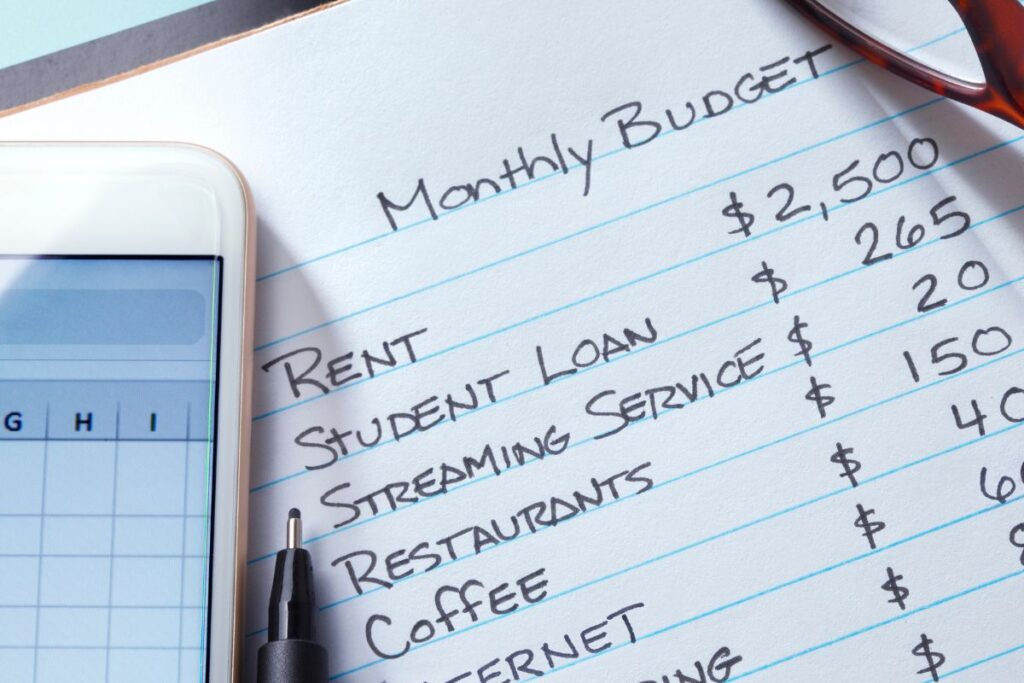 Monthly BUDGET
RENT $ 2,500
STUDENT LOAN $ 265
STREAMING SERVICE $ 20
RESTAURANTS $ 150
COFFEE $ 40
$
$
$
G H I